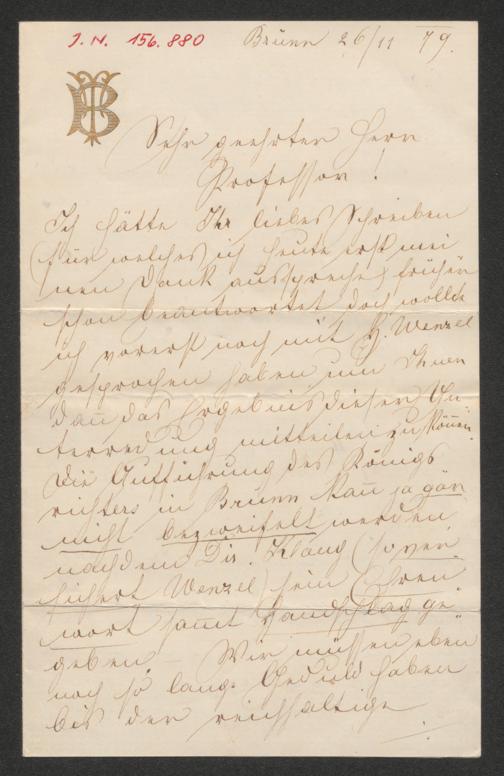 J. N. 156.880
Brünn 26/11 79.
Sehr geehrter Herr
Professor!
Ich hätte Ihr liebes Schreiben
(für welches ich heute erst mei
nen Dank ausspreche) früher
schon beantwortet doch wollte
ich vorerst noch mit H. Wenzel
gesprochen haben um Ihnen
dan̄ das Ergebnis dieser Un-
terredung mitteilen zu können.
Die Aufführung des Königs
richters in Brünn kan̄ ja gar
nicht bezweifelt werden
nachdem Dir. Klang (so ver
sichert Wenzel) sein Ehren
wort sammt Handschlag ge
geben. – Wir müssen eben
noch so lang Geduld haben
bis der reichhaltige